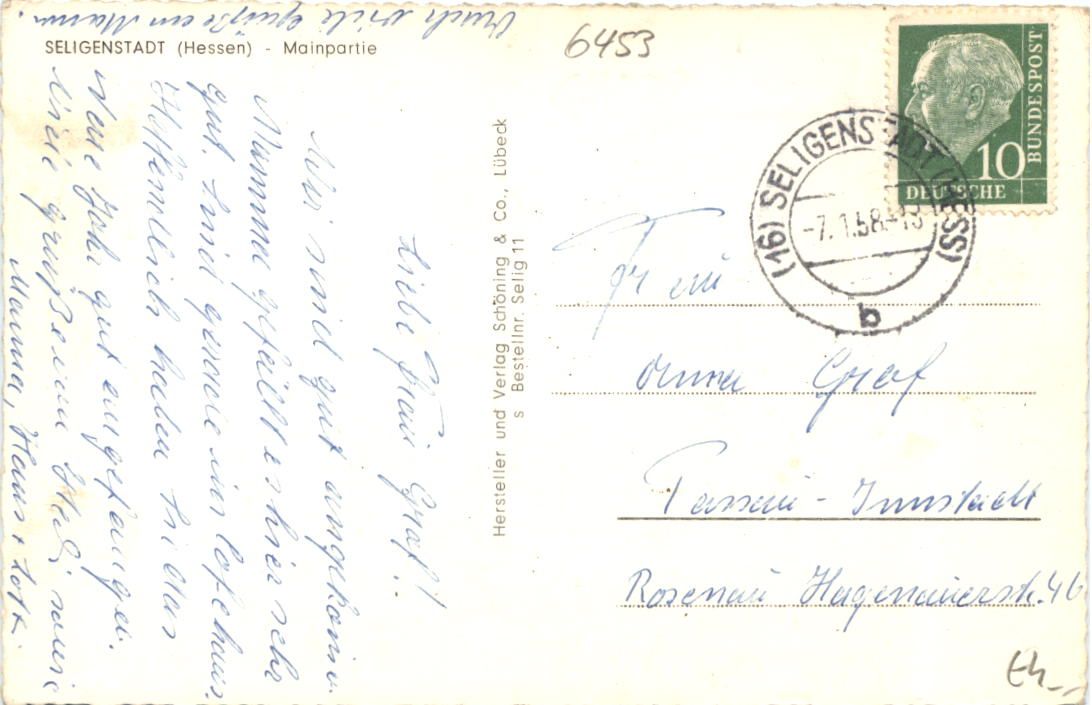 SELIGENSTADT (Hessen) - Mainpartie
6453
Liebe Frau Graf!
Wir sind gut angekomm.
Mamma gefällt es hier sehr
gut. Sind gerade im
Hoffentlich haben Sie das
Neue Jahr gut angefangen.
Viele Grüße von
Mama, Hans + Lott.
Auch viele Grüße an Mann.
Hersteller und Verlag Schöning & Co., Lübeck
s Bestellnr. Selig 11
DEUTSCHE
BUNDESPOST
10
(16) SELIGENSTADT (HESS)
-7.1.58.-13
b
Frau
Anna Graf
Passau-Innstadt
Rosenau Hagenauerstr. 46